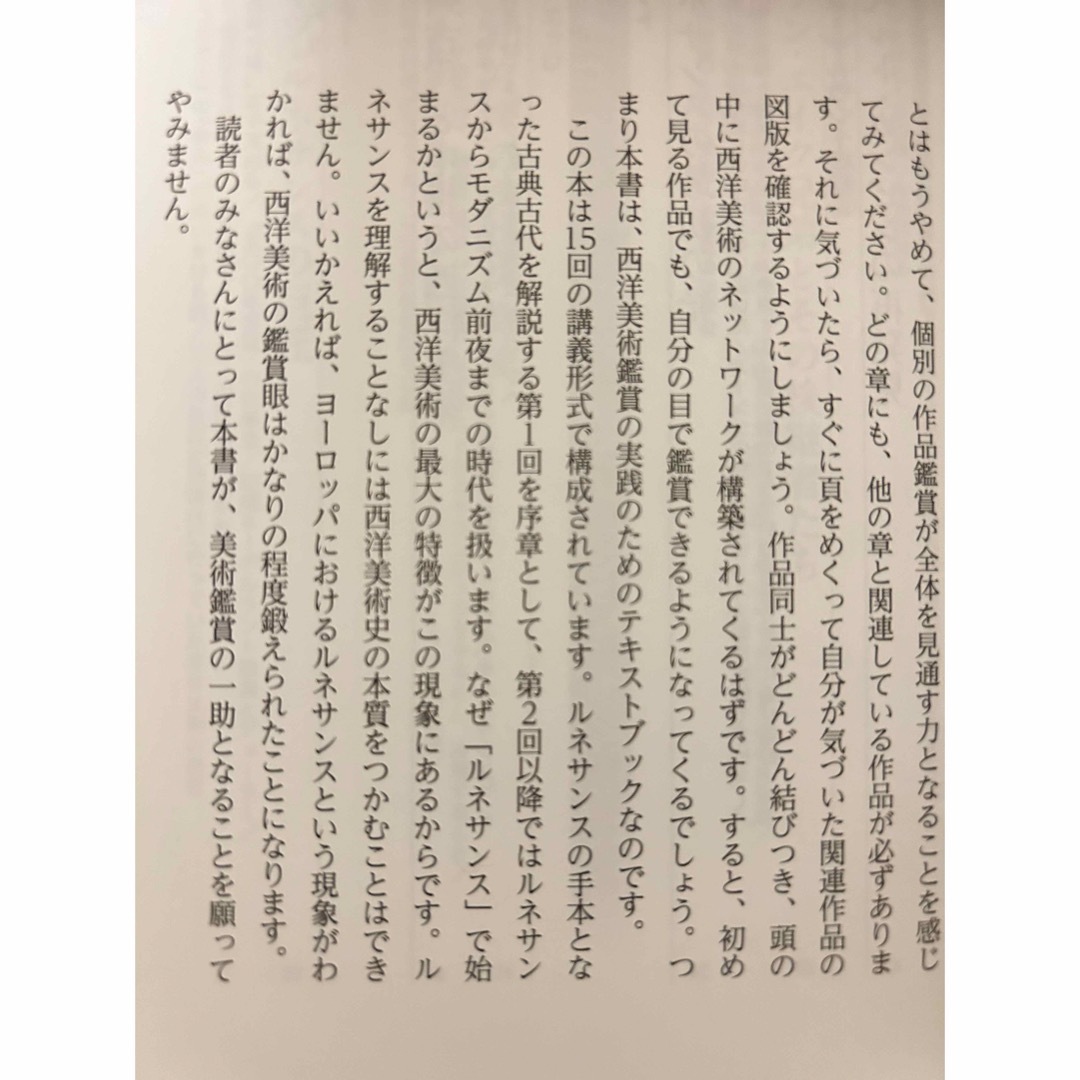 とはもうやめて、個別の作品鑑賞が全体を見通す力となることを感じ
てみてください。どの章にも、他の章と関連している作品が必ずありま
す。それに気づいたら、すぐに頁をめくって自分が気づいた関連作品の
図版を確認するようにしましょう。作品同士がどんどん結びつき、頭の
中に西洋美術のネットワークが構築されてくるはずです。すると、初め
て見る作品でも、自分の目で鑑賞できるようになってくるでしょう。つ
まり本書は、西洋美術鑑賞の実践のためのテキストブックなのです。
この本は15回の講義形式で構成されています。ルネサンスの手本とな
った古典古代を解説する第1回を序章として、第2回以降ではルネサン
スからモダニズム前夜までの時代を扱います。なぜ「ルネサンス」で始
まるかというと、西洋美術の最大の特徴がこの現象にあるからです。ル
ネサンスを理解することなしには西洋美術史の本質をつかむことはでき
ません。いいかえれば、ヨーロッパにおけるルネサンスという現象がわ
かれば、西洋美術の鑑賞眼はかなりの程度鍛えられたことになります。
読者のみなさんにとって本書が、美術鑑賞の一助となることを願って
やみません。